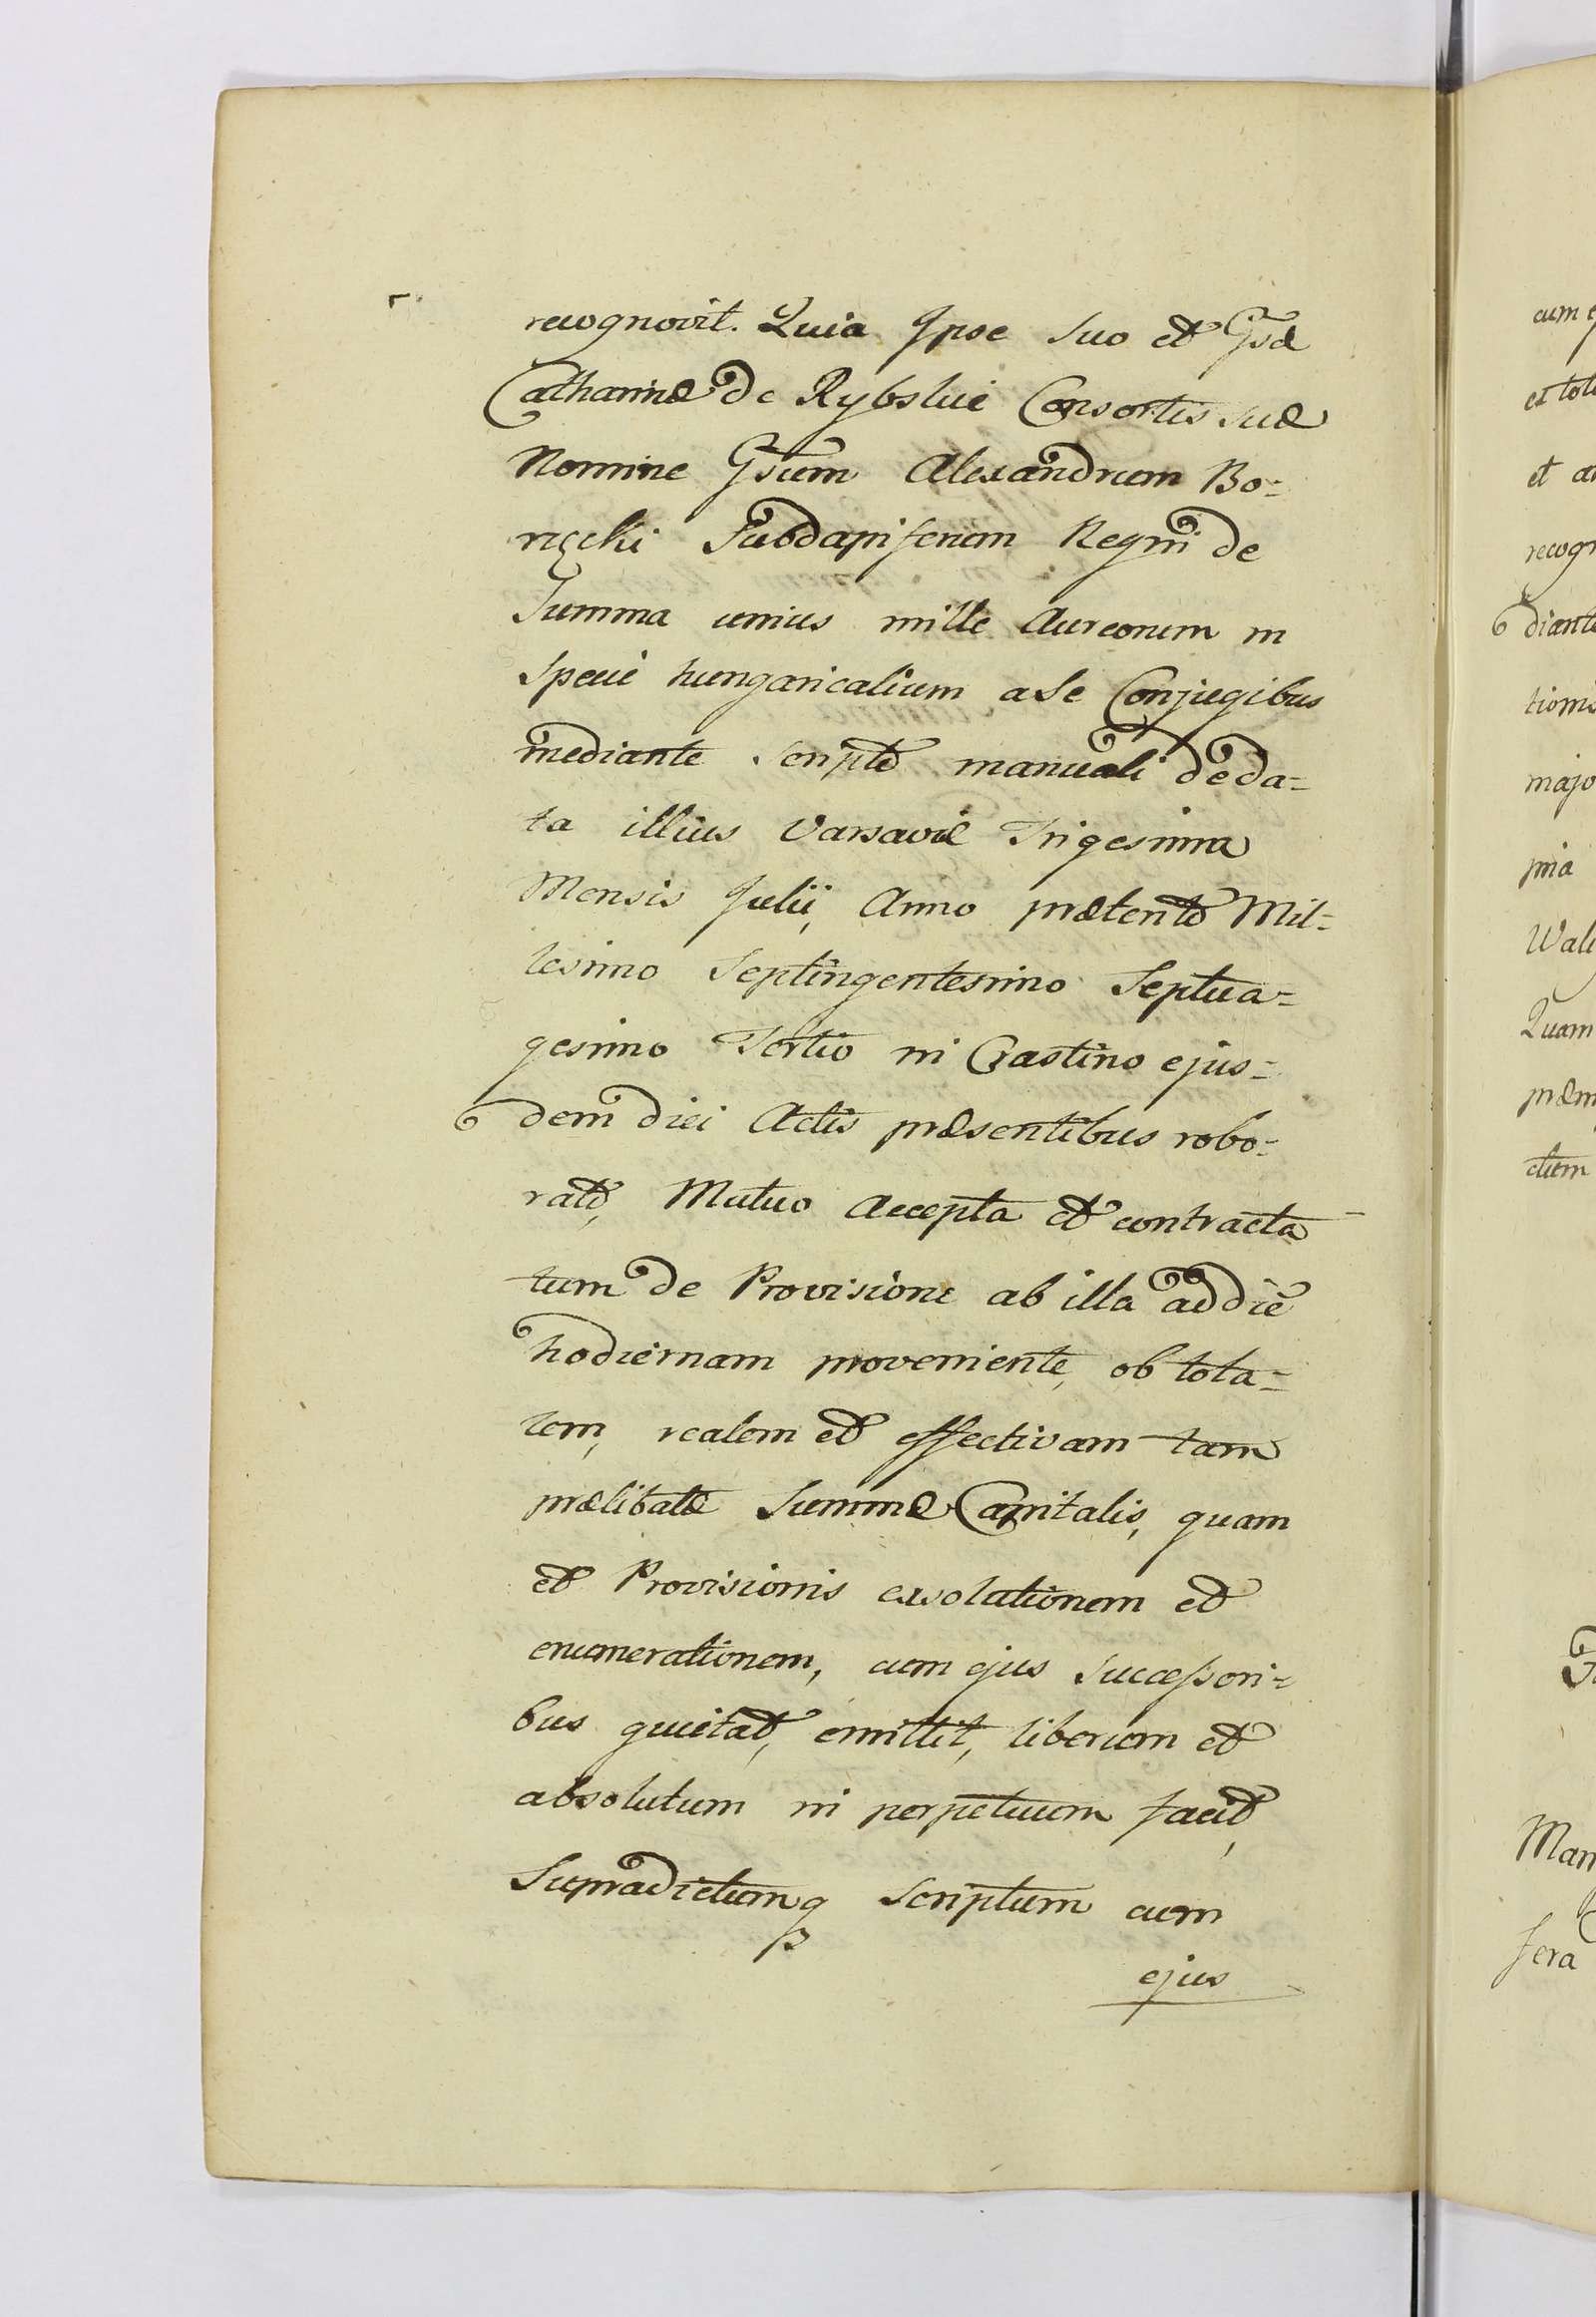 recognovit. Quia Ipse Suo et Gsæ
Catharinæ de Rybskie Consortis suæ
Nomine Gsum Alexandrum Bo=
ręcki Subdapiferum Regni de
Summa unius mille Aureorum in
Specie hungaricalium a Se Conjugibus
mediante Scripto manuali de da=
ta illius Varsaviæ Trigesima
Mensis Julii, Anno præterito Mil=
lesimo Septingentesimo Septua=
gesimo Tertio in Crastino ejus=
dem diei Actis præsentibus robo=
rato, Mutuo accepta et contracta
tum de Provisione ab illa ad diē
hodiernam proveniente, ob tota=
lem, realem et effectivam tam
prælibatæ Summæ Capitalis, quam
et Provisionis exsolutionem et
enumerationem, cum ejus Successori=
bus quietat, emittit, liberum et
absolutum in perpetuum facit,
Supradictumq Scriptum cum
ejus
cum
et
recog
diante
tionis
majo
pria
Quam
ctum
Man
fera